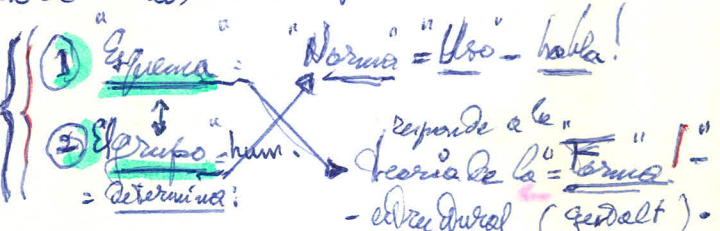 ① "Esquema" = "Norma" = "Uso" - habla!
② El "grupo" hum. responde a la
= determina: teoría de la = "Forma" -
- estructural (gestalt).